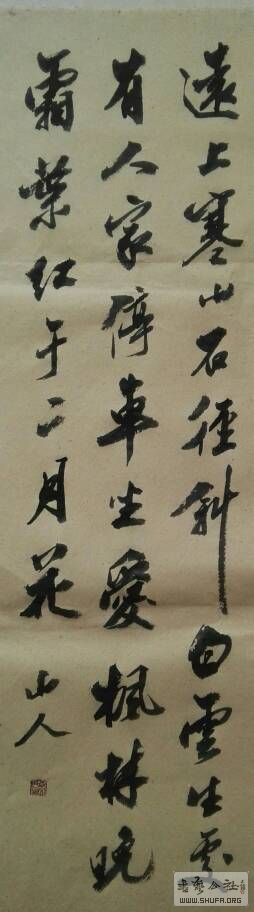 遠上寒山石徑斜白雲生處
有人家停車坐愛楓林晚
霜葉红于二月花
山人
書藝公社
WWW.SHUFA.ORG